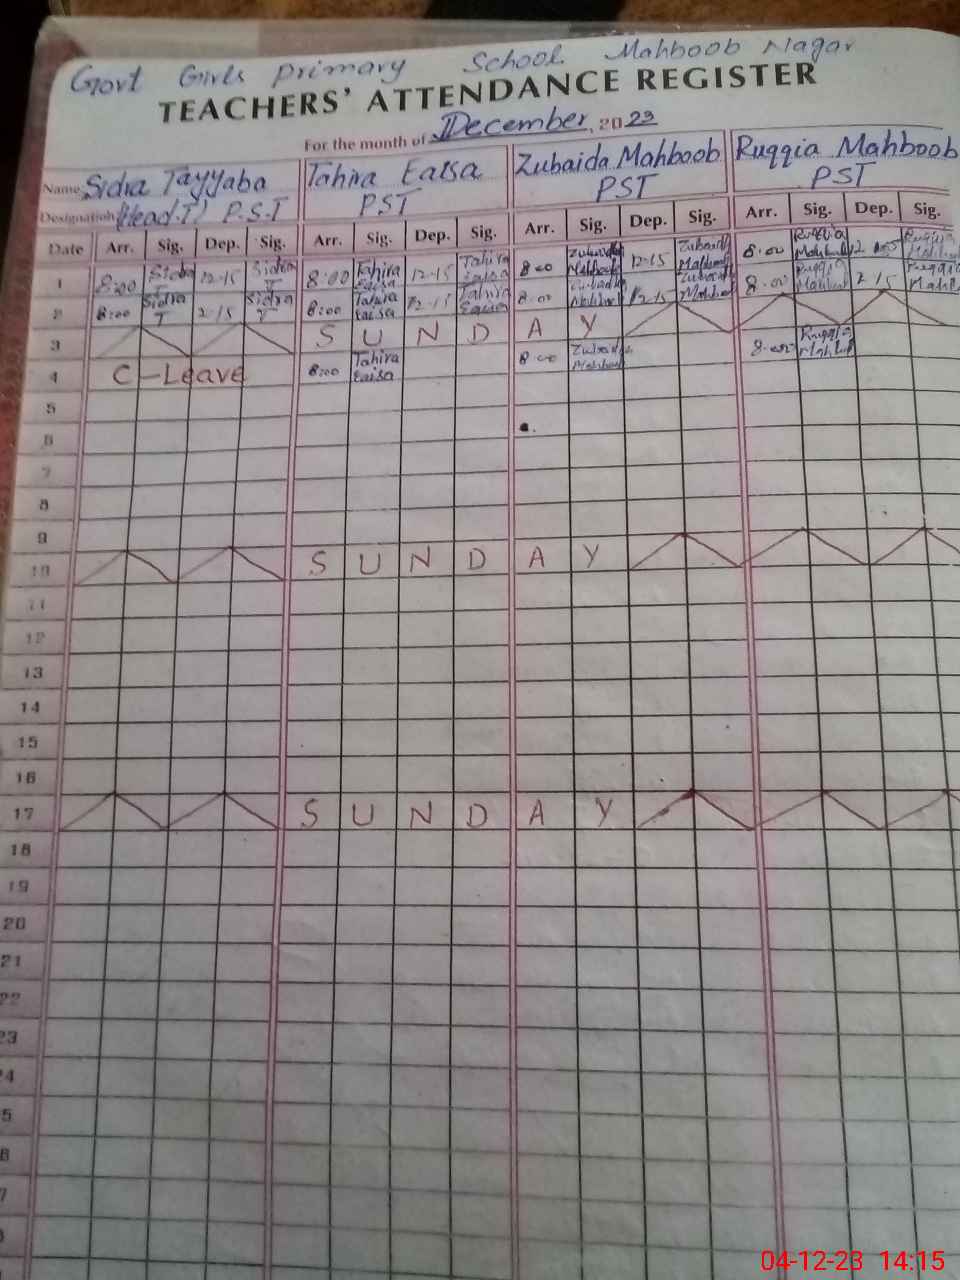 Govt Girls Primary School Mahboob Nagar
TEACHERS' ATTENDANCE REGISTER
For the month of December, 2023
Name Sidra Tayyaba Tahira Eaisa Zubaida Mahboob Ruqqia Mahboob
Designation (Head.T) P.S.T PST PST PST
Date Arr. Sig. Dep. Sig. Arr. Sig. Dep. Sig. Arr. Sig. Dep. Sig. Arr. Sig. Dep. Sig.
1 8:00 Sidra T 12-15 Sidra T 8:00 Tahira Eaisa 12-15 Tahira Eaisa 8:00 Zubaida Mahboob 12-15 Zubaida Mahboob 8:00 Ruqqia Mahboob Ruqqia Mahboob
2 8:00 Sidra T 2-15 Sidra T 8:00 Tahira Eaisa 12-15 Tahira Eaisa 8:00 Zubaida Mahboob 12-15 Zubaida Mahboob 8:00 Ruqqia Mahboob 2 15 Ruqqia Mahb
3 S U N D A Y
4 C-Leave 8:00 Tahira Eaisa 8:00 Zubaida Mahboob 8:00 Ruqqia Mahbub
5
6
7
8
9
10 S U N D A Y
11
12
13
14
15
16
17 S U N D A Y
18
19
20
21
22
23
4
5
6
7
04-12-23 14:15